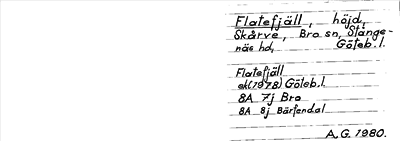 Flatefjäll, höjd,
Skårve, Bro sn, Stånge-
näs hd, Göteb.l.
Flatefjäll
ek(1978) Göteb.l.
8A 7j Bro
8A 8j Bärfendal
A.G. 1980.